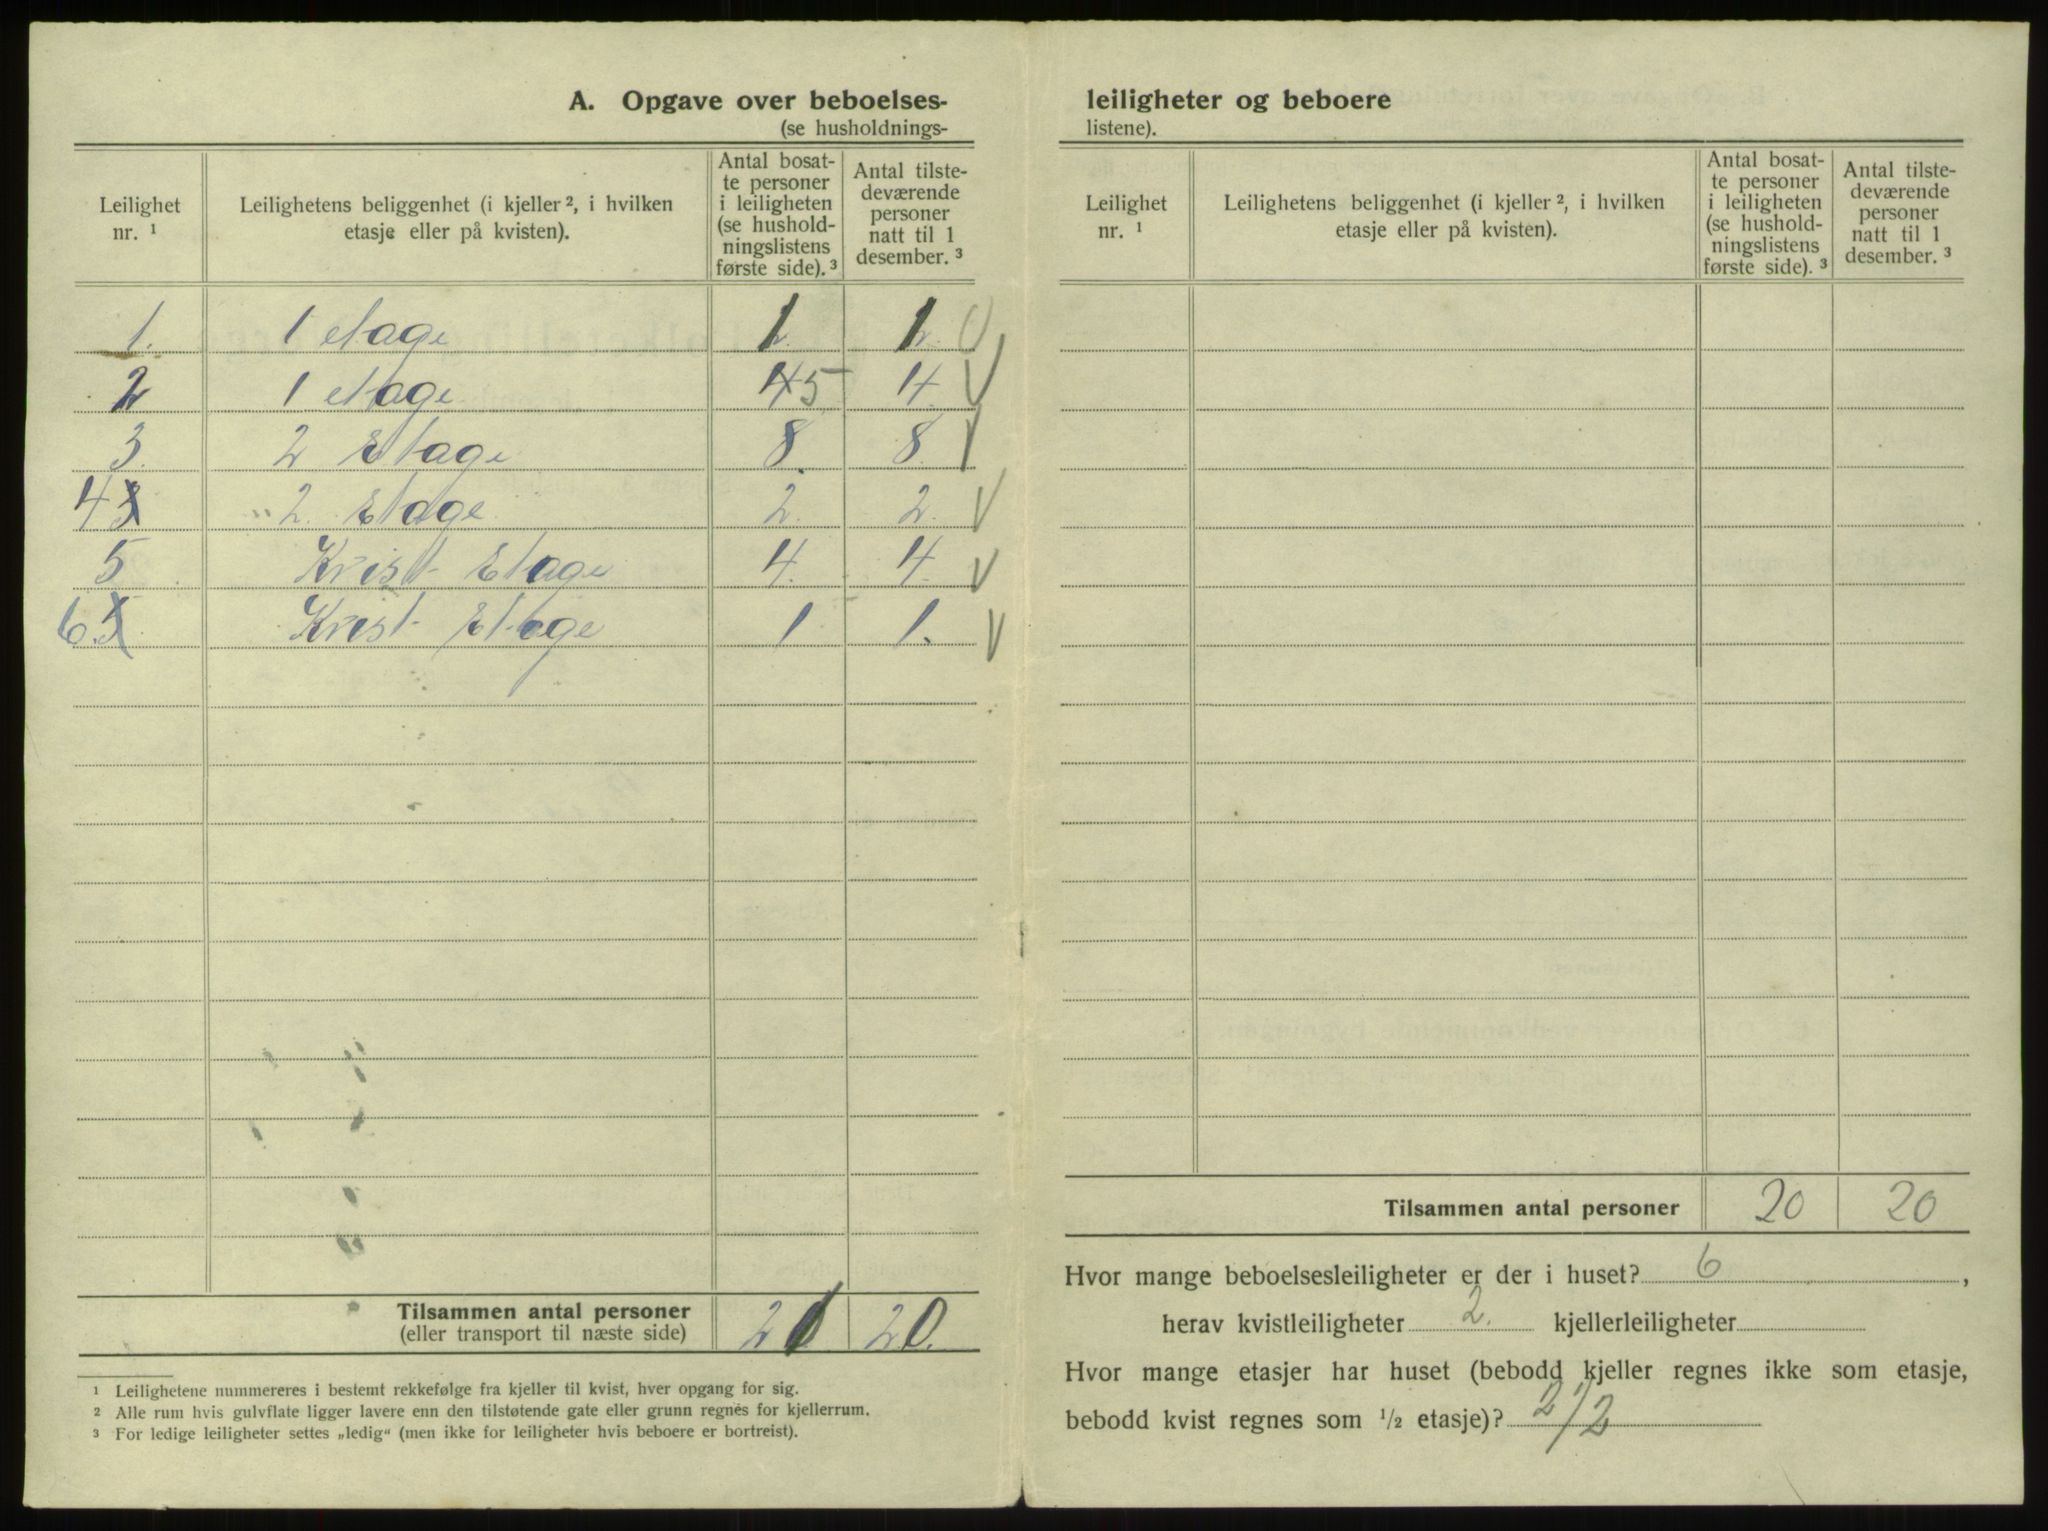 A. Opgave over beboelses-
(se husholdnings-
Leilighet nr. ¹
Leilighetens beliggenhet (i kjeller ², i hvilken etasje eller på kvisten).
Antal bosatte personer i leiligheten (se husholdningslistens første side). ³
Antal tilstedeværende personer natt til 1 desember. ³
1. 1 etage 1 1
2 1 etage 4 5 4.
3. 2 Etage 8. 8.
4 3 " 2. Etage 2. 2.
5 Kvist Etage 4. 4.
6. 5 Kvist Etage 1 1.
Tilsammen antal personer 20 20.
(eller transport til næste side)
¹ Leilighetene nummereres i bestemt rekkefølge fra kjeller til kvist, hver opgang for sig.
² Alle rum hvis gulvflate ligger lavere enn den tilstøtende gate eller grunn regnes for kjellerrum.
³ For ledige leiligheter settes „ledig“ (men ikke for leiligheter hvis beboere er bortreist).
leiligheter og beboere
listene).
Leilighet nr. ¹
Leilighetens beliggenhet (i kjeller ², i hvilken etasje eller på kvisten).
Antal bosatte personer i leiligheten (se husholdningslistens første side). ³
Antal tilstedeværende personer natt til 1 desember. ³
Tilsammen antal personer 20 20
Hvor mange beboelsesleiligheter er der i huset? 6 ,
herav kvistleiligheter 2. kjellerleiligheter
Hvor mange etasjer har huset (bebodd kjeller regnes ikke som etasje,
bebodd kvist regnes som ½ etasje)? 2 1/2